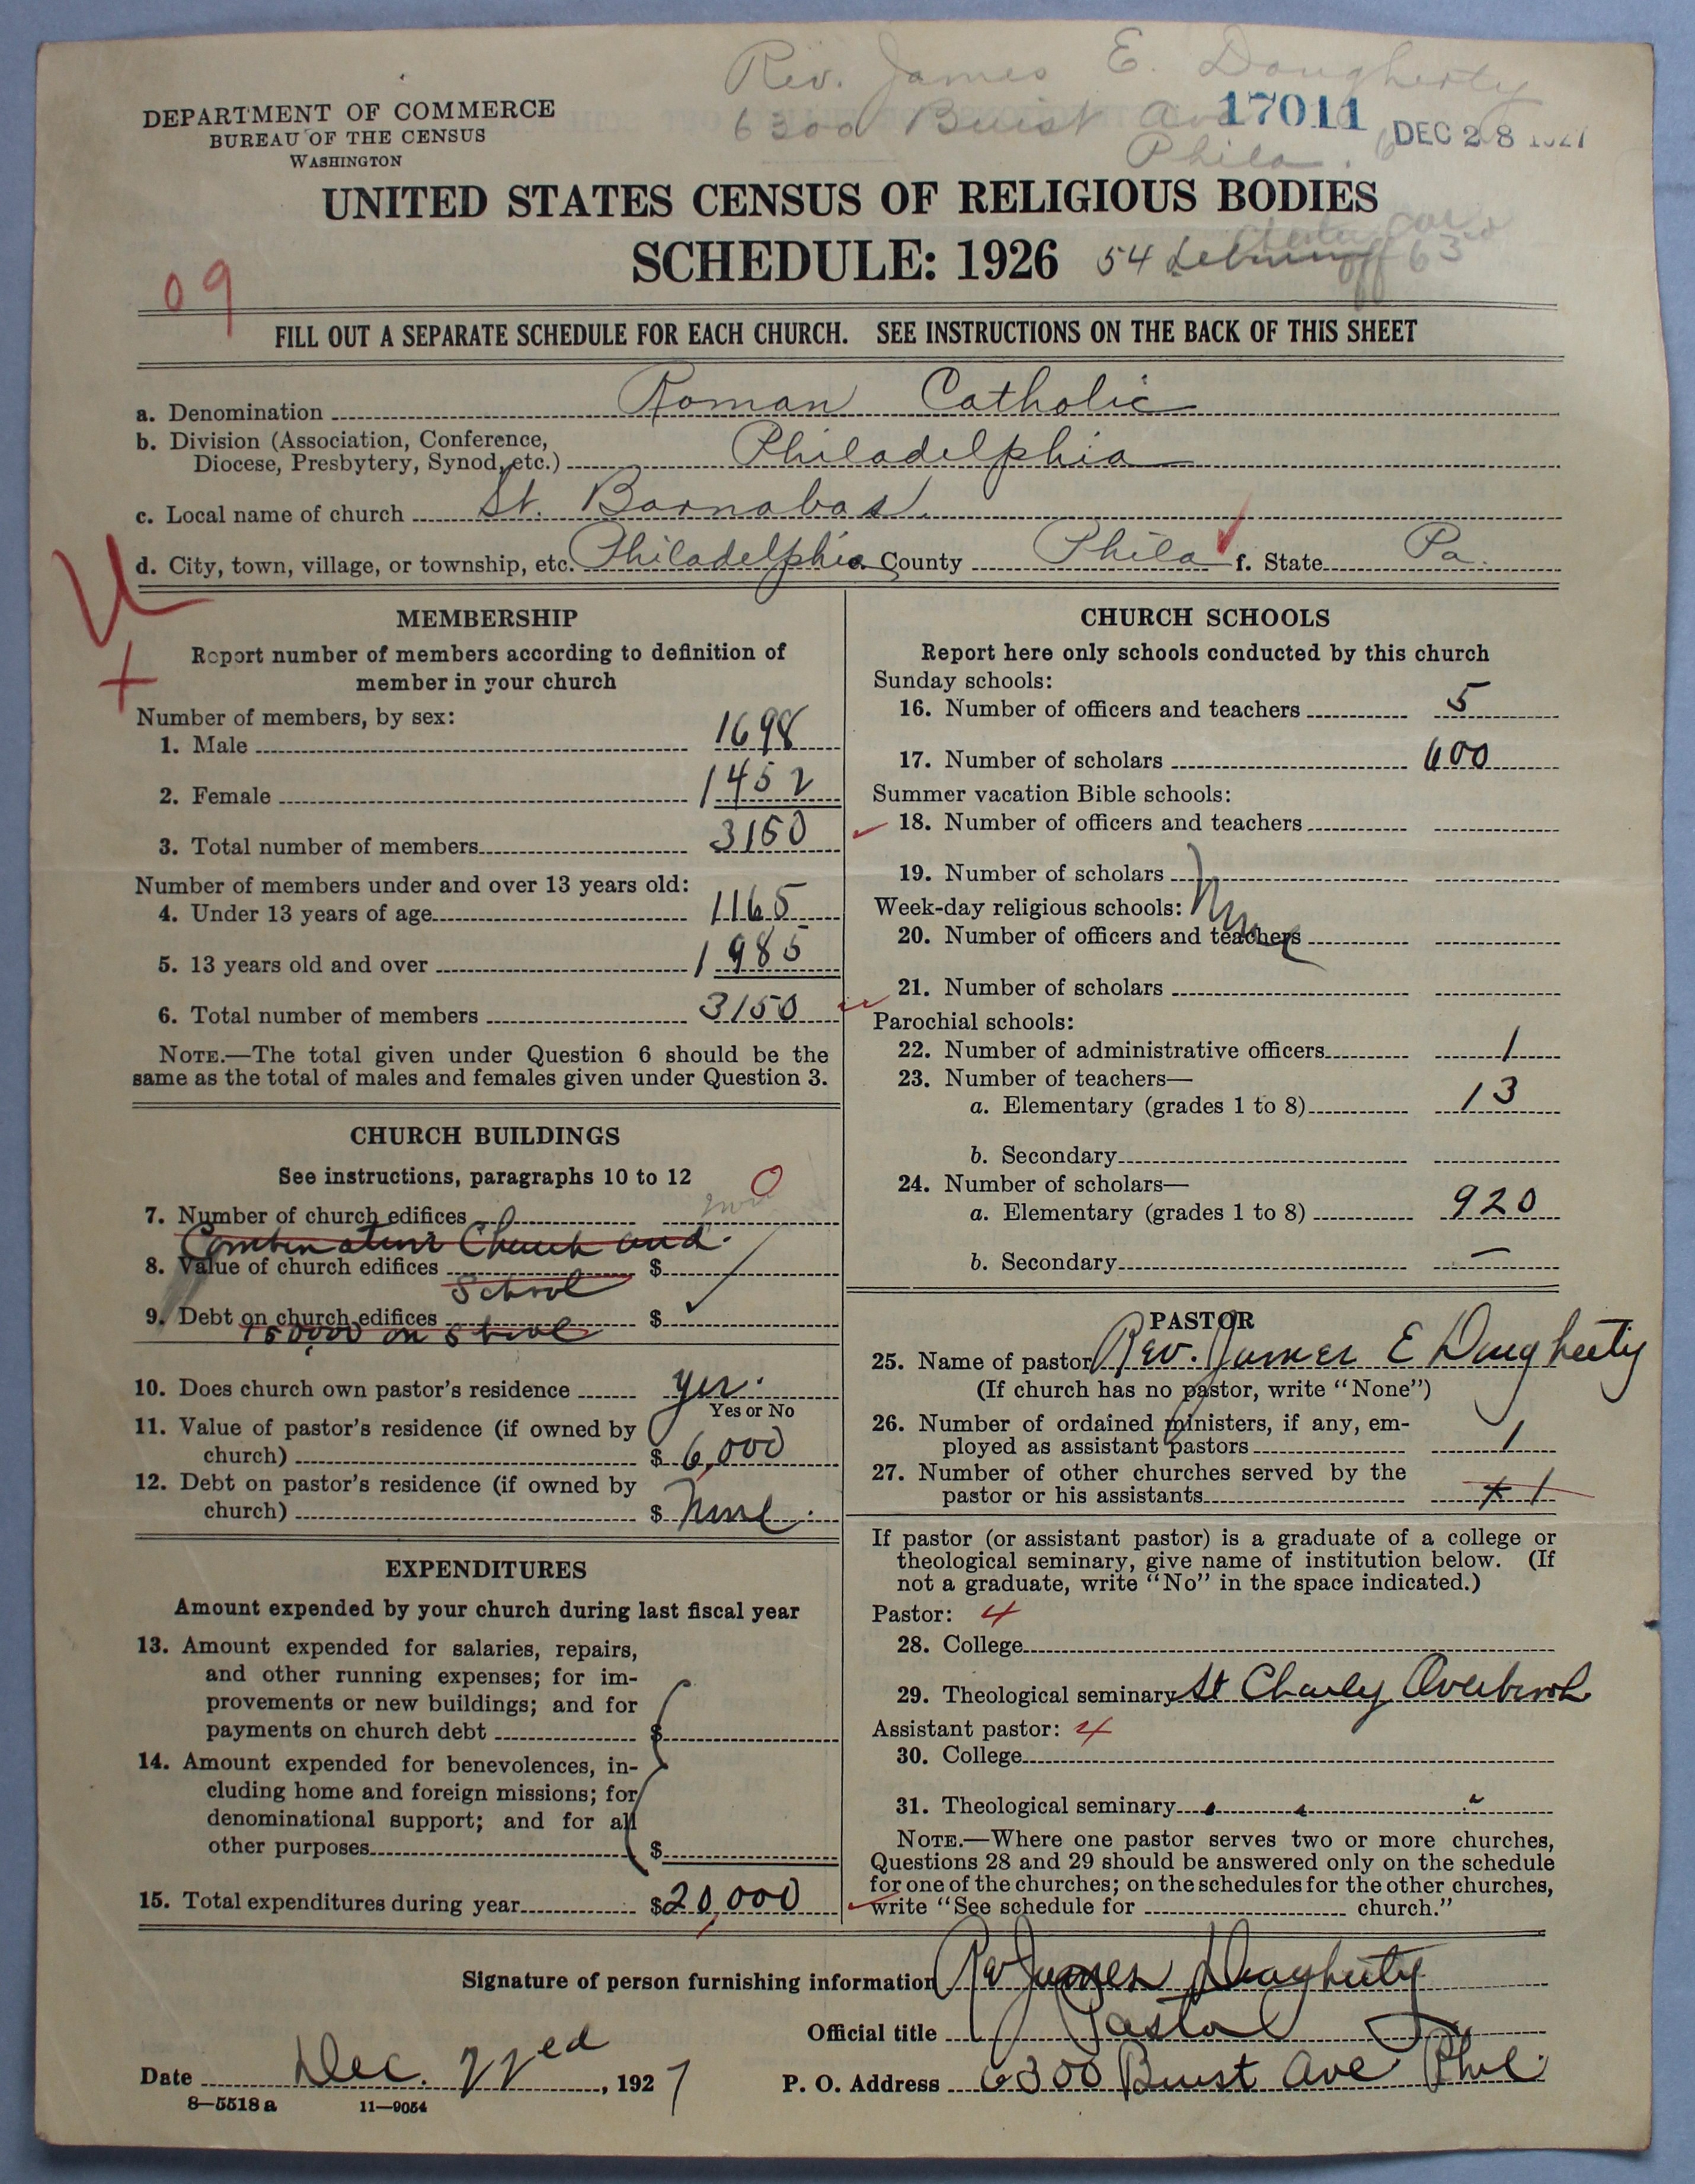 Rev. James E. Dougherty
6300 Buist Ave
17011
Phila.
DEC 28 1927
DEPARTMENT OF COMMERCE
BUREAU OF THE CENSUS
WASHINGTON
UNITED STATES CENSUS OF RELIGIOUS BODIES
SCHEDULE: 1926
54
63rd
09
FILL OUT A SEPARATE SCHEDULE FOR EACH CHURCH. SEE INSTRUCTIONS ON THE BACK OF THIS SHEET
a. Denomination Roman Catholic
b. Division (Association, Conference,
Diocese, Presbytery, Synod, etc.) Philadelphia
c. Local name of church St. Barnabas.
d. City, town, village, or township, etc. Philadelphia County Phila f. State Pa.
MEMBERSHIP
Report number of members according to definition of
member in your church
Number of members, by sex:
1. Male 1698
2. Female 1452
3. Total number of members 3150
Number of members under and over 13 years old:
4. Under 13 years of age 1165
5. 13 years old and over 1985
6. Total number of members 3150
NOTE.—The total given under Question 6 should be the
same as the total of males and females given under Question 3.
CHURCH BUILDINGS
See instructions, paragraphs 10 to 12
0
7. Number of church edifices
Combination Church and
8. Value of church edifices $
School
9. Debt on church edifices $
on School
10. Does church own pastor's residence yes.
Yes or No
11. Value of pastor's residence (if owned by
church) $ 6,000
12. Debt on pastor's residence (if owned by
church) $ None.
EXPENDITURES
Amount expended by your church during last fiscal year
13. Amount expended for salaries, repairs,
and other running expenses; for im-
provements or new buildings; and for
payments on church debt $
14. Amount expended for benevolences, in-
cluding home and foreign missions; for
denominational support; and for all
other purposes $
15. Total expenditures during year $20,000
CHURCH SCHOOLS
Report here only schools conducted by this church
Sunday schools:
16. Number of officers and teachers 5
17. Number of scholars 600
Summer vacation Bible schools:
18. Number of officers and teachers
19. Number of scholars
None
Week-day religious schools:
20. Number of officers and teachers
21. Number of scholars
Parochial schools:
22. Number of administrative officers 1
23. Number of teachers—
a. Elementary (grades 1 to 8) 13
b. Secondary
24. Number of scholars—
a. Elementary (grades 1 to 8) 920
b. Secondary —
PASTOR
25. Name of pastor Rev. James E Dougherty
(If church has no pastor, write "None")
26. Number of ordained ministers, if any, em-
ployed as assistant pastors 1
27. Number of other churches served by the
pastor or his assistants 1
If pastor (or assistant pastor) is a graduate of a college or
theological seminary, give name of institution below. (If
not a graduate, write "No" in the space indicated.)
Pastor: 4
28. College
29. Theological seminary St Charles Overbrook
Assistant pastor: 4
30. College
31. Theological seminary " " "
NOTE.—Where one pastor serves two or more churches,
Questions 28 and 29 should be answered only on the schedule
for one of the churches; on the schedules for the other churches,
write "See schedule for church."
Signature of person furnishing information Rev James Dougherty
Official title Pastor
Date Dec. 22ed, 1927
P. O. Address 6300 Buist Ave Phil
8—5518 a 11—9054